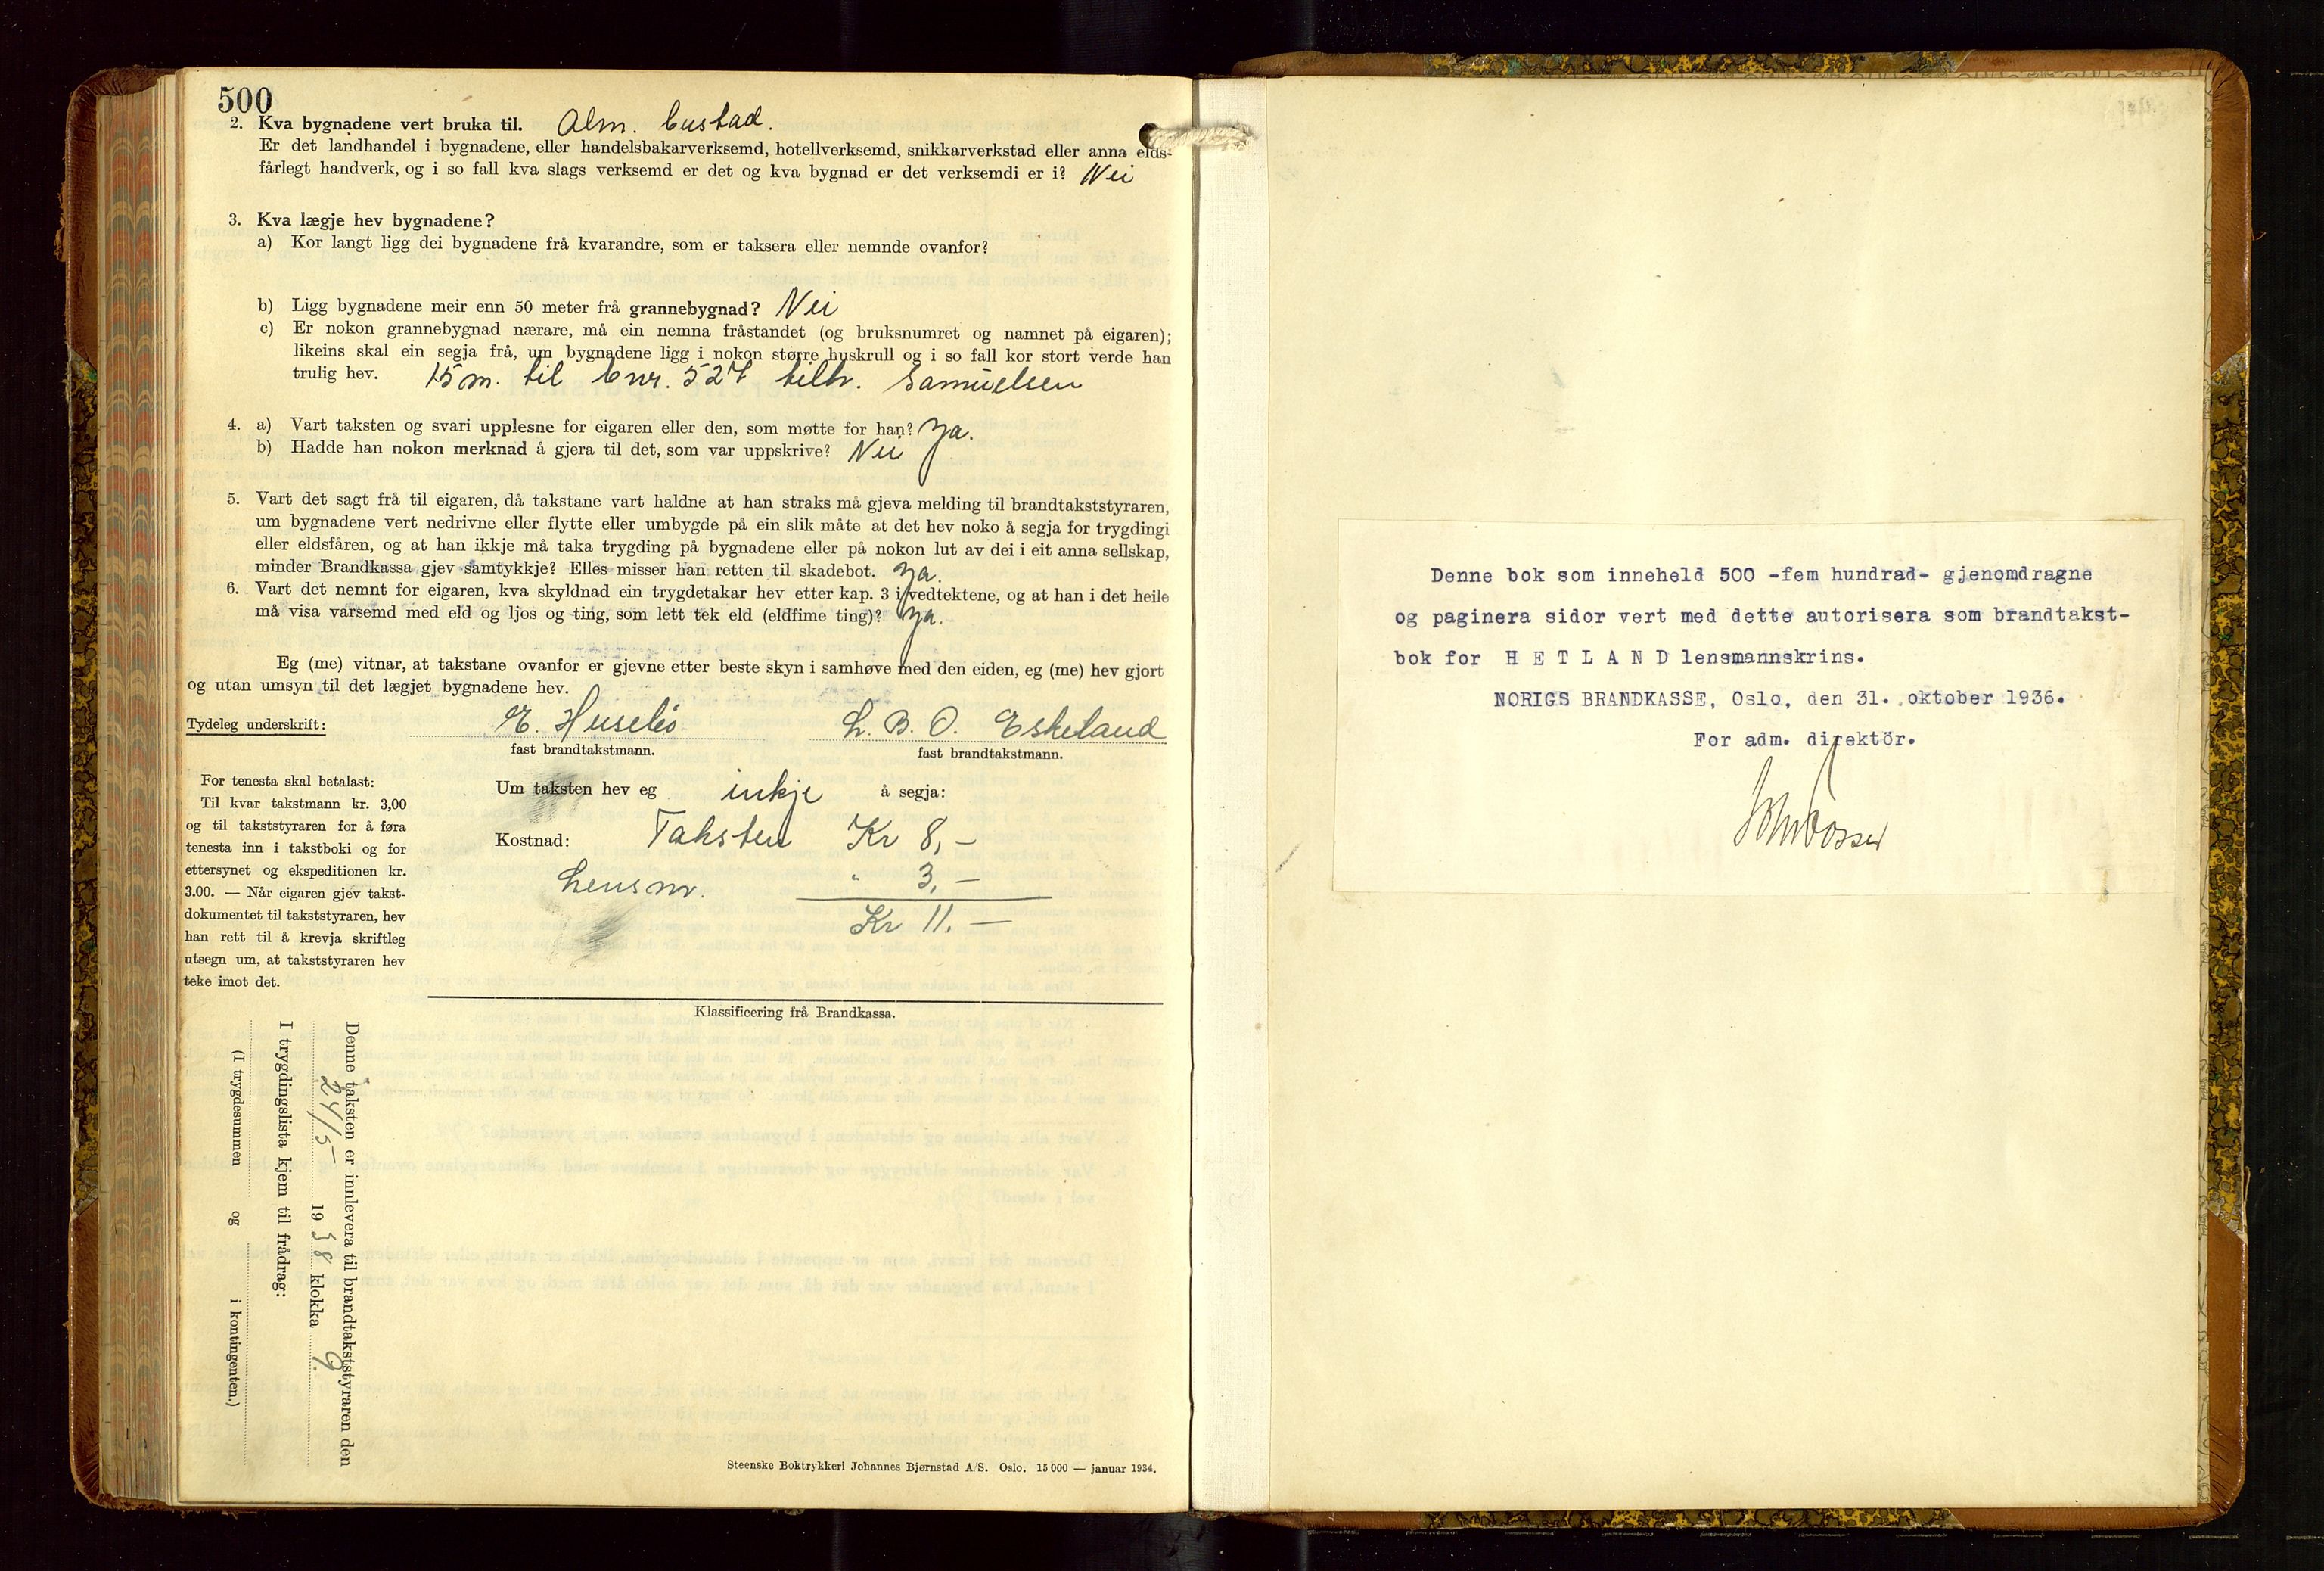 500
2. Kva bygnadene vert bruka til. Alm. bustad.
Er det landhandel i bygnadene, eller handelsbakarverksemd, hotellverksemd, snikkarverkstad eller anna elds-
fårlegt handverk, og i so fall kva slags verksemd er det og kva bygnad er det verksemdi er i? Nei
3. Kva lægje hev bygnadene?
a) Kor langt ligg dei bygnadene frå kvarandre, som er taksera eller nemnde ovanfor?
b) Ligg bygnadene meir enn 50 meter frå grannebygnad? Nei
c) Er nokon grannebygnad nærare, må ein nemna fråstandet (og bruksnumret og namnet på eigaren);
likeins skal ein segja frå, um bygnadene ligg i nokon større huskrull og i so fall kor stort verde han
trulig hev. 15 m. til bnr. 527 tilh. Samuelsen
4. a) Vart taksten og svari upplesne for eigaren eller den, som møtte for han? Ja.
b) Hadde han nokon merknad å gjera til det, som var uppskrive? Nei
5. Vart det sagt frå til eigaren, då takstane vart haldne at han straks må gjeva melding til brandtakststyraren,
um bygnadene vert nedrivne eller flytte eller umbygde på ein slik måte at det hev noko å segja for trygdingi
eller eldsfåren, og at han ikkje må taka trygding på bygnadene eller på nokon lut av dei i eit anna sellskap,
minder Brandkassa gjev samtykkje? Elles misser han retten til skadebot. Ja.
6. Vart det nemnt for eigaren, kva skyldnad ein trygdetakar hev etter kap. 3 i vedtektene, og at han i det heile
må visa varsemd med eld og ljos og ting, som lett tek eld (eldfime ting)? Ja.
Eg (me) vitnar, at takstane ovanfor er gjevne etter beste skyn i samhøve med den eiden, eg (me) hev gjort
og utan umsyn til det lægjet bygnadene hev.
Tydeleg underskrift: E. Husebø L. B. O. Eskeland
fast brandtakstmann. fast brandtakstmann.
For tenesta skal betalast:
Til kvar takstmann kr. 3,00
og til takststyraren for å føra
tenesta inn i takstboki og for
ettersynet og ekspeditionen kr.
3.00. — Når eigaren gjev takst-
dokumentet til takststyraren, hev
han rett til å krevja skriftleg
utsegn um, at takststyraren hev
teke imot det.
Um taksten hev eg inkje å segja:
Kostnad: Taksten Kr 8,-
Lensm. " 3,-
Kr 11.-
Klassificering frå Brandkassa.
Denne taksten er innlevera til brandtakststyraren den
24/5- 1938 klokka 9.
I trygdingslista kjem til frådrag:
(I trygdesummen og i kontingenten.)
Steenske Boktrykkeri Johannes Bjørnstad A/S. Oslo. 15 000 — januar 1934.
Denne bok som inneheld 500 -fem hundrad- gjenomdragne
og paginera sidor vert med dette autorisera som brandtakst-
bok for H E T L A N D lensmannskrins.
NORIGS BRANDKASSE, Oslo, den 31. oktober 1936.
For adm. direktör.